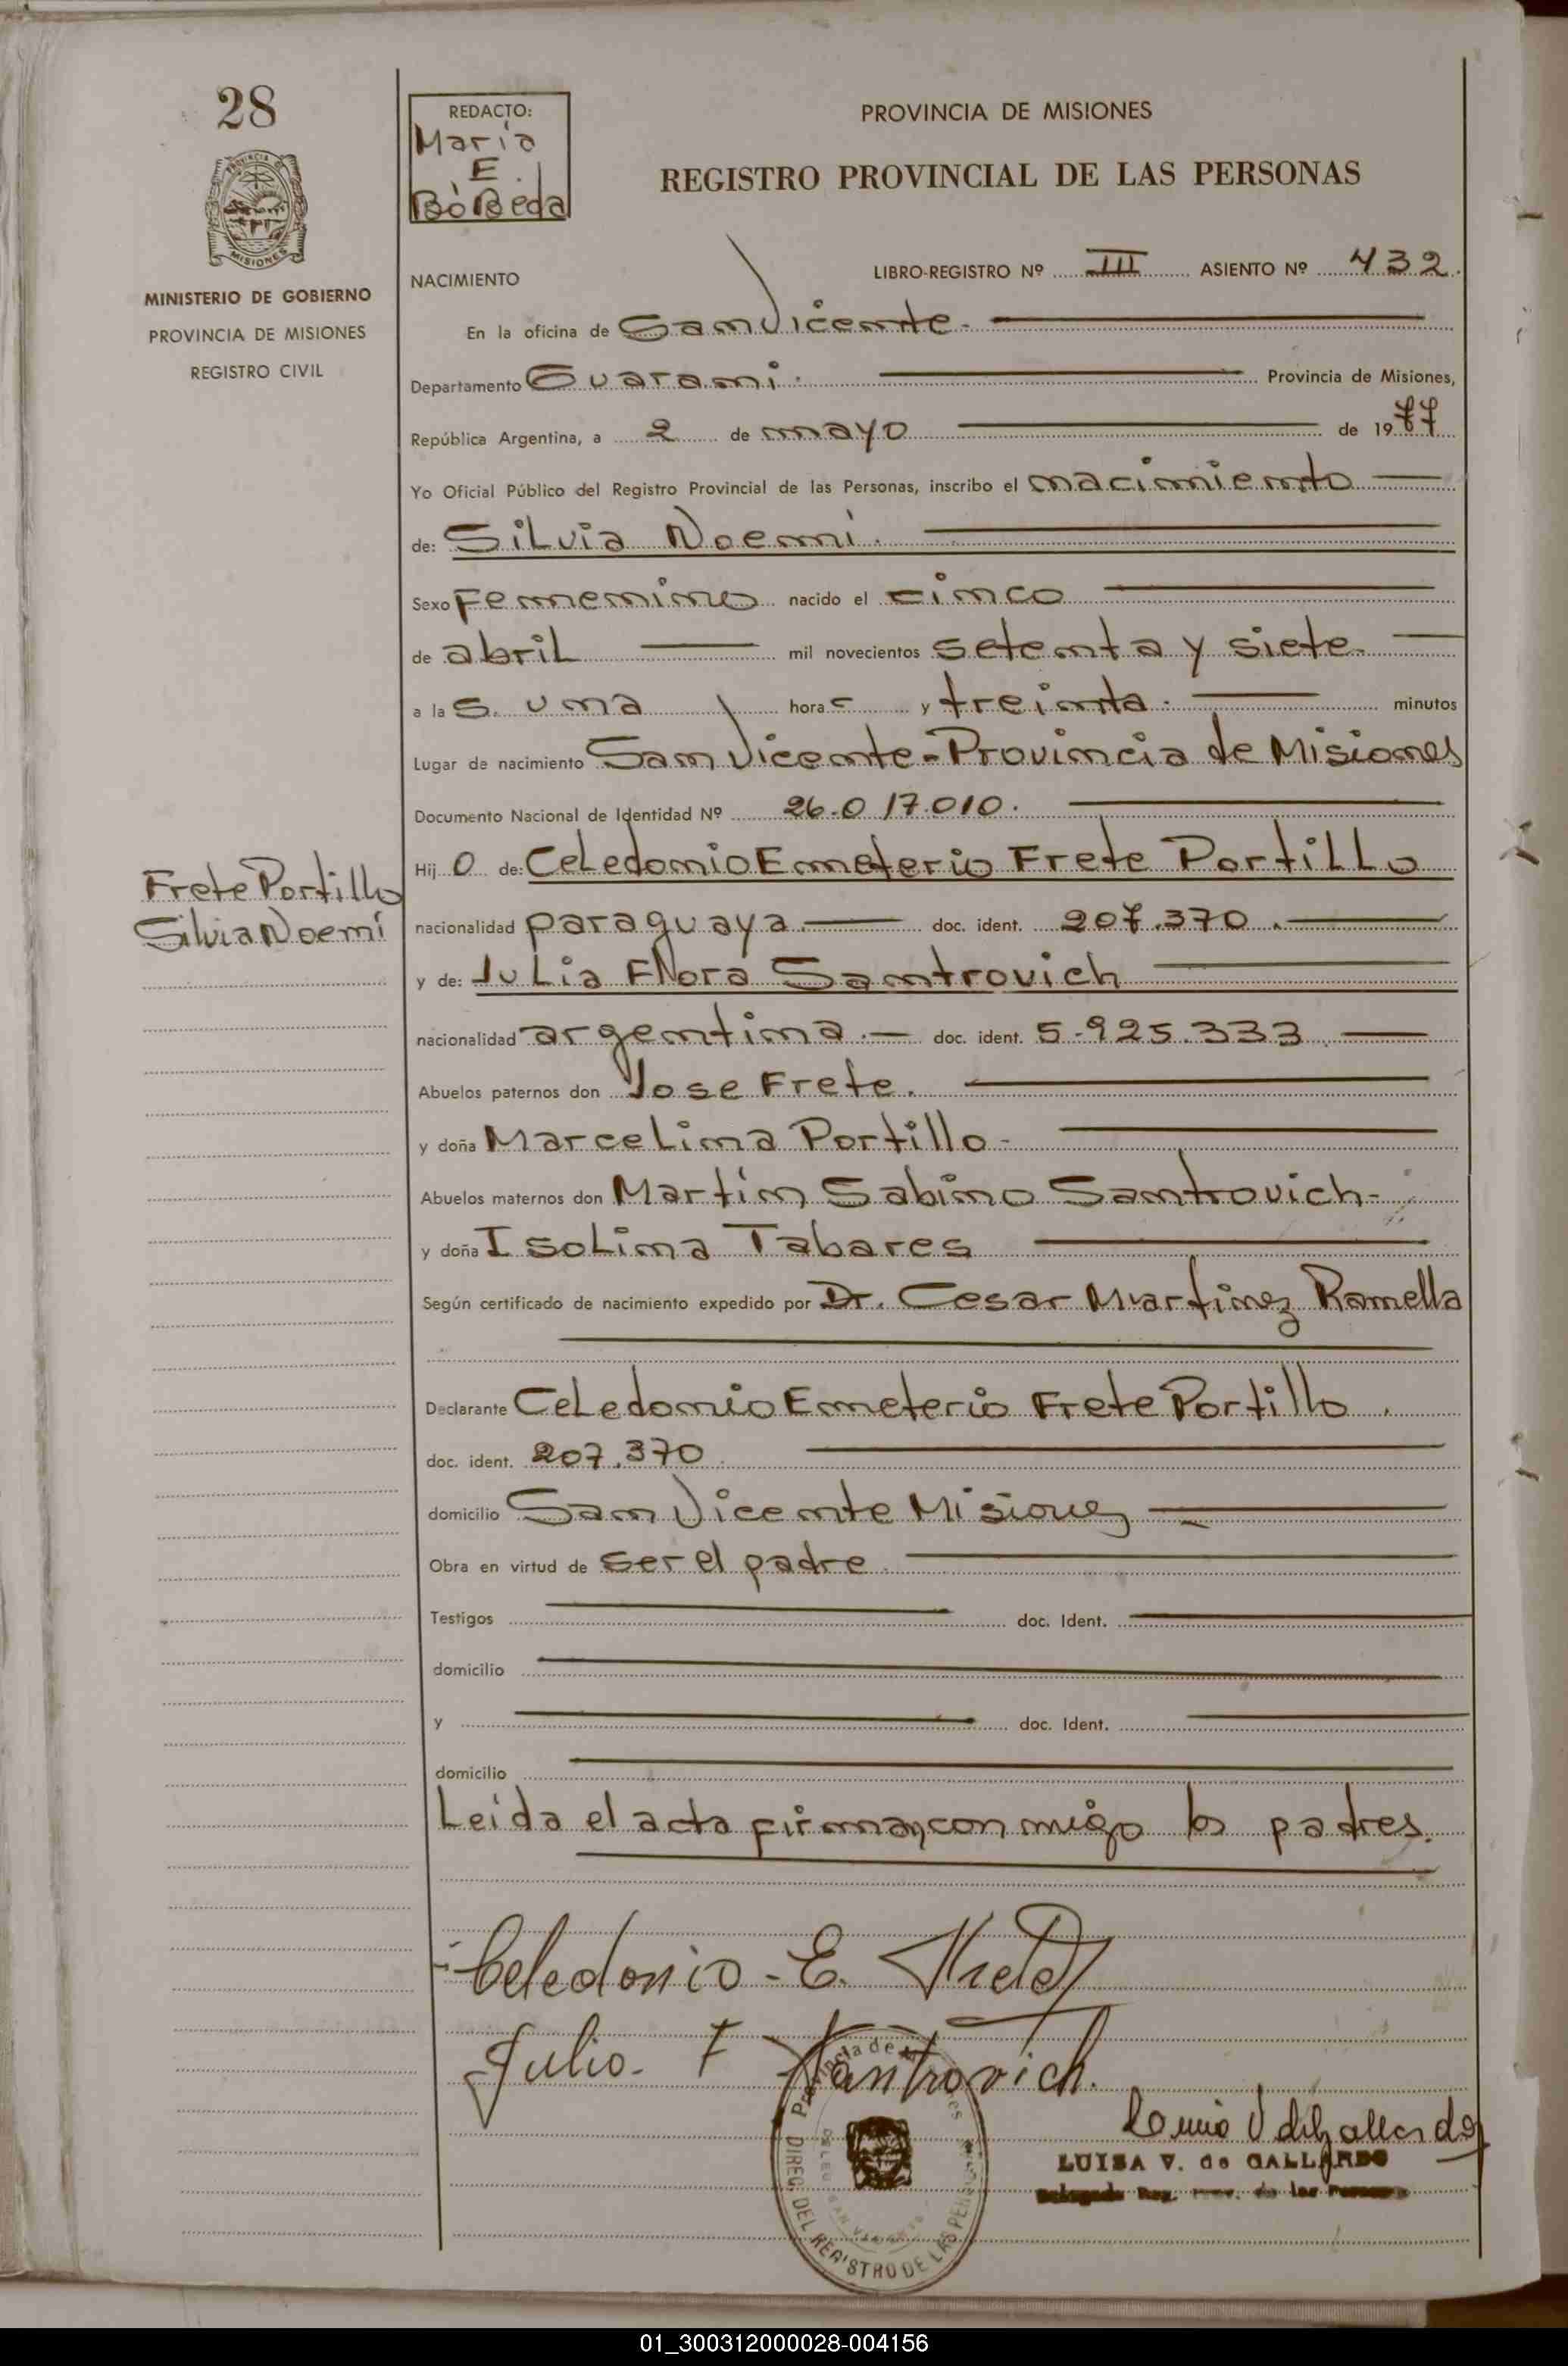 28
MISIONES
MINISTERIO DE GOBIERNO
PROVINCIA DE MISIONES
REGISTRO CIVIL
REDACTO:
Maria
E.
BòBeda
PROVINCIA DE MISIONES
REGISTRO PROVINCIAL DE LAS PERSONAS
NACIMIENTO
LIBRO-REGISTRO Nº III ASIENTO Nº 432.
En la oficina de San Vicente.-
Departamento Guarani. Provincia de Misiones,
República Argentina, a 2 de mayo de 1977
Yo Oficial Público del Registro Provincial de las Personas, inscribo el nacimiento
de: Silvia Noemi.
Sexo Femenino nacido el cinco
de abril mil novecientos setenta y siete.
a la s. una hora s y treinta. minutos
Lugar de nacimiento San Vicente-Provincia de Misiones
Documento Nacional de Identidad Nº 26.017.010.
Frete Portillo
Silvia Noemí
Hij o de: Celedonio Emeterio Frete Portillo
nacionalidad paraguaya. doc. ident. 207.370.
y de: Julia Flora Santrovich
nacionalidad argentina.- doc. ident. 5.925.333
Abuelos paternos don Jose Frete.
y doña Marcelina Portillo-
Abuelos maternos don Martín Sabino Santrovich-
y doña Isolina Tabares
Según certificado de nacimiento expedido por Dr. Cesar Martinez Ramella
Declarante Celedonio Emeterio Frete Portillo.
doc. ident. 207.370
domicilio San Vicente Misiones
Obra en virtud de ser el padre.
Testigos doc. Ident.
domicilio
y doc. Ident.
domicilio
Leida el acta firman con migo los padres.
Celedonio - E. Frete
Julia - F Santrovich.
Provincia de Misiones
DIREC. DEL REGISTRO DE LAS PERSONAS
LUISA V. de GALLARDO
Delegada Reg. Prov. de las Personas
01_300312000028-004156